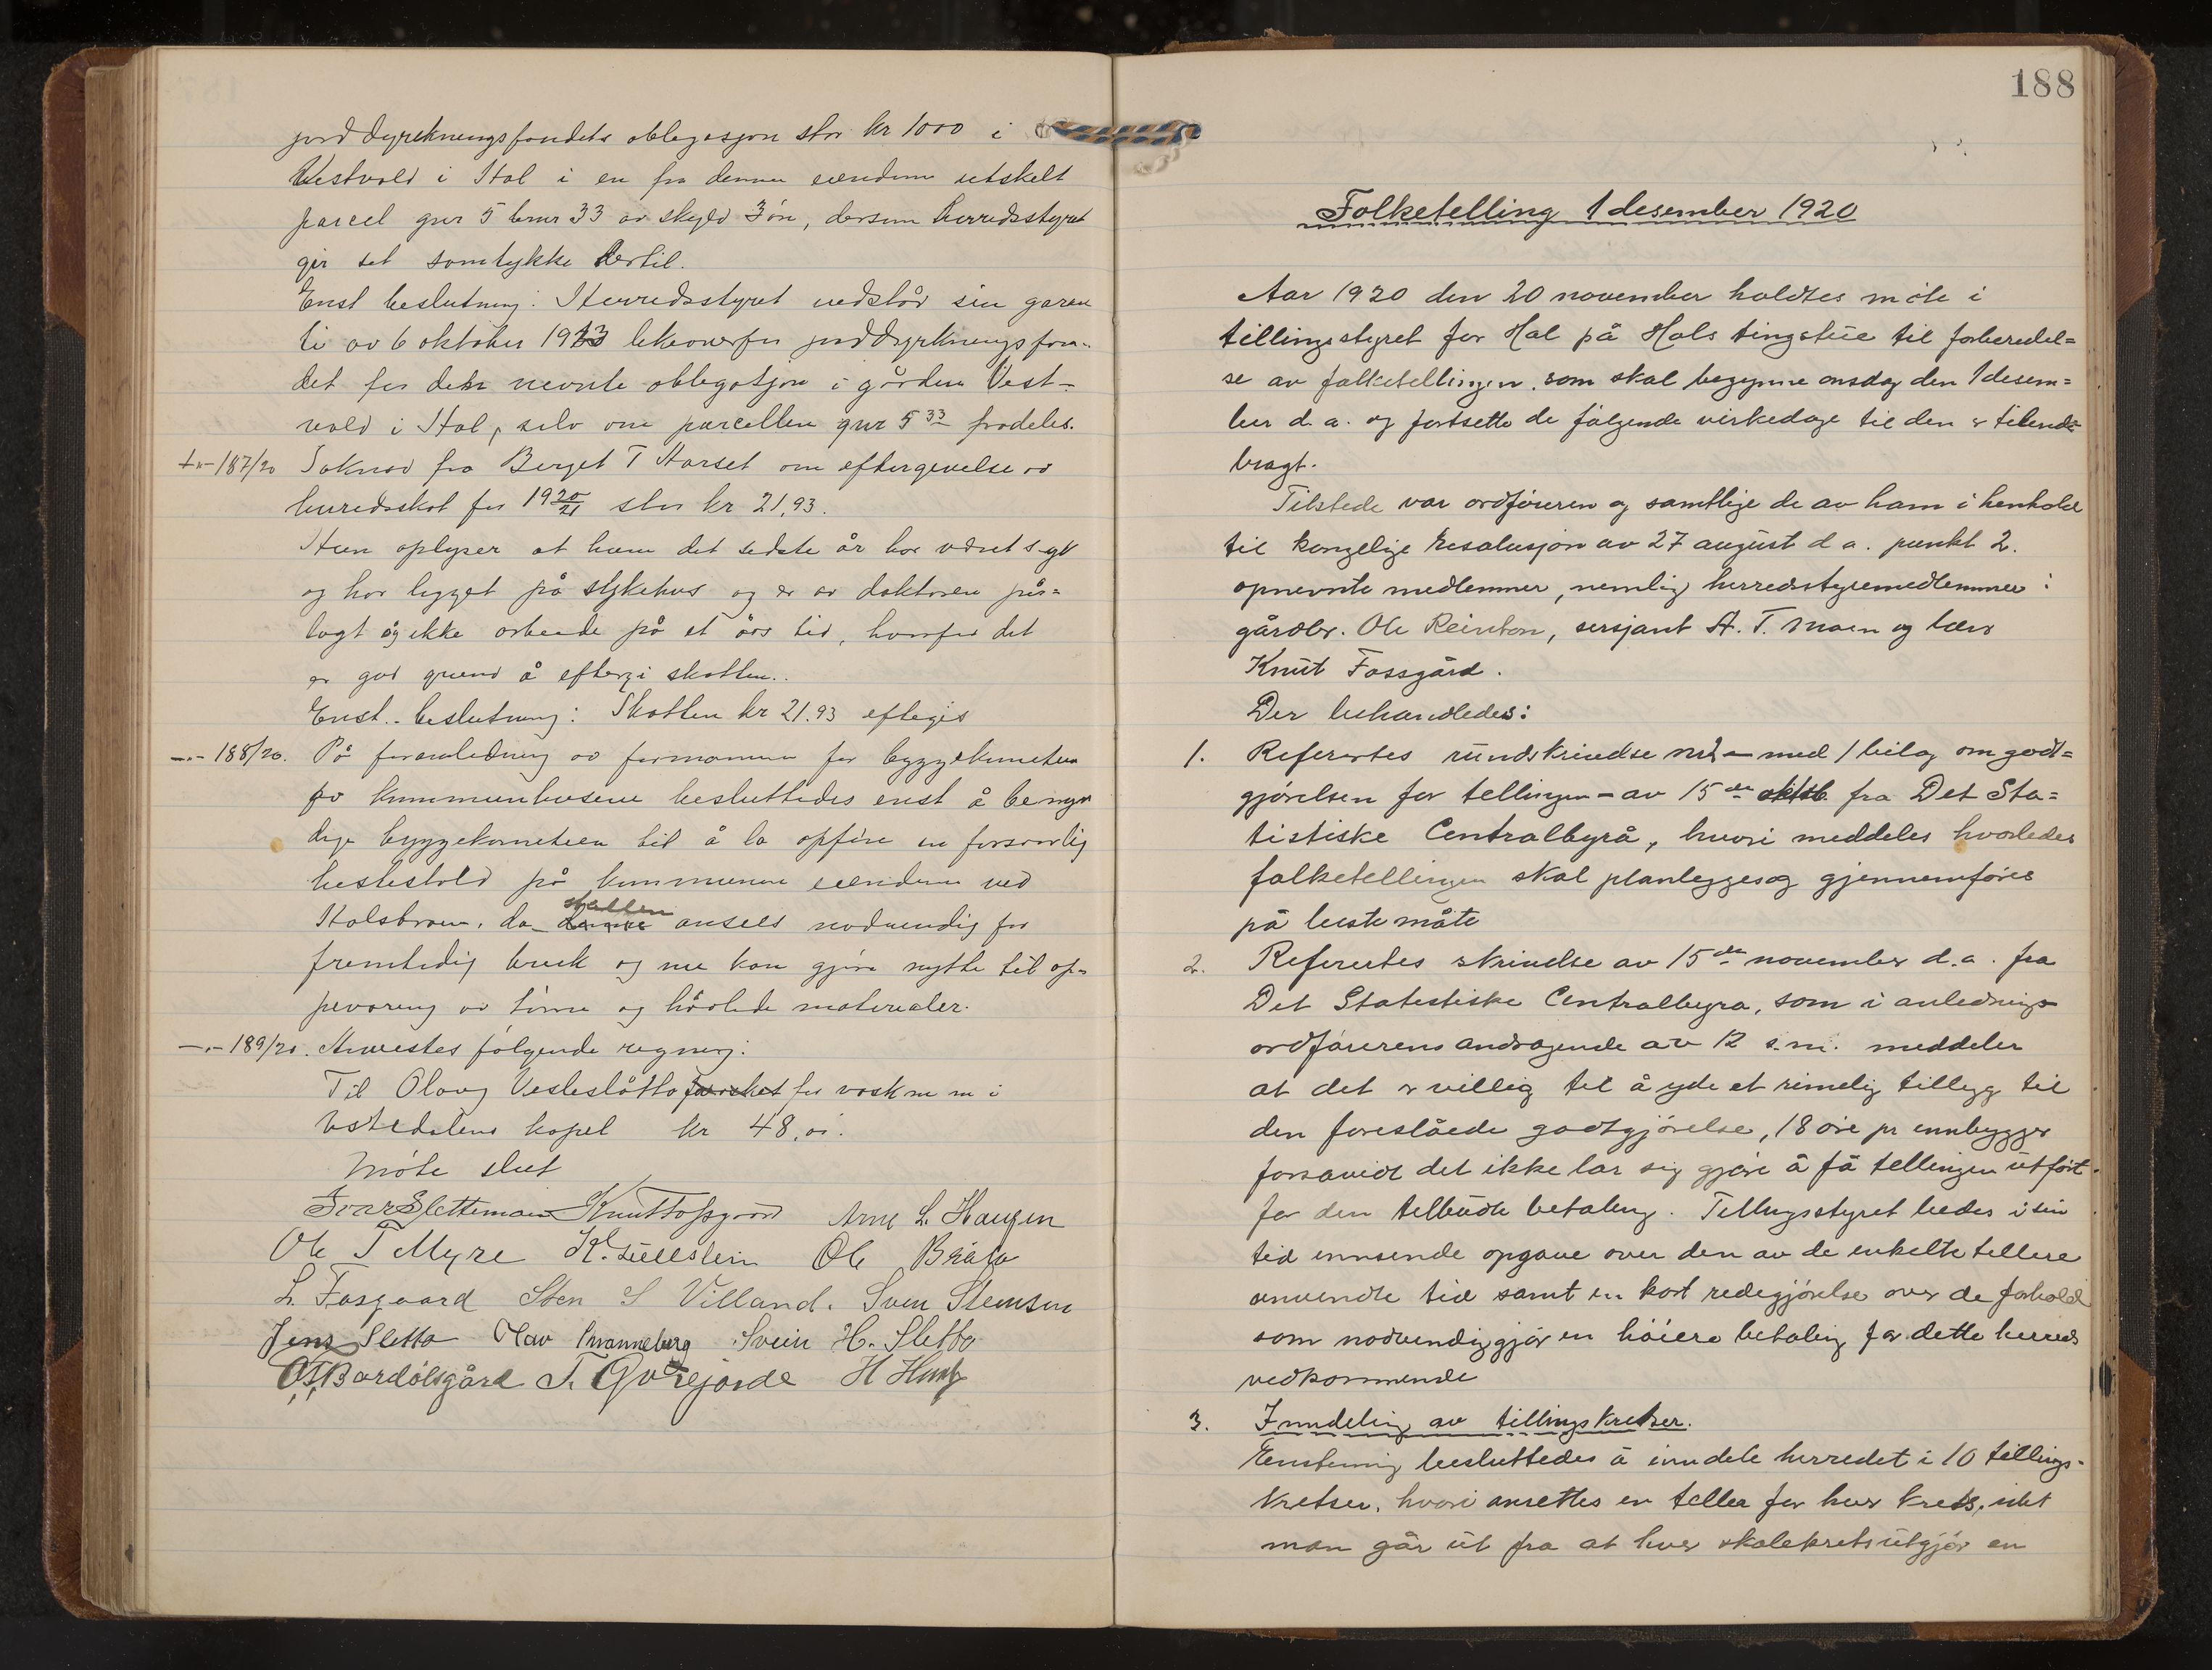 jorddyrkningsfondets obligasjon stor kr 1000 i
Vestvold i Hol i en fra denne eiendom utskelt
parcel gnr 5 bnr 33 av skyld 3 øre, dersom herredsstyret
gir sit samtykke hertil.
Enst beslutning: Herredsstyret vedstår sin garan
ti av 6 oktober 1913 likeoverfor jorddyrkningsfon-
det for den nevnte obligatsjon i gården Vest-
vold i Hol, selv om parcellen gnr 5 33 fradeles.
-"- 187/20 Søknad fra Berget T Harset om eftergivelse av
herredsskat for 1920/21 stor kr 21,93.
Hun oplyser at hun det sidste år har været syk
og har ligget på sykehus og er av doktoren på-
lagt og ikke arbeide på et års tid, hvorfor det
er god grund å eftergi skatten..
Enst.. beslutning: Skatten kr 21.93 eftegis
-"- 188/20. På foranledning av formannen for byggekomiteen
for kommunehusene besluttedes enst å bemyn
dige byggekomiteen til å la opføre en forsvarlig
hestestald på kommunens eiendom ved
Holsbroen, da stallen ansees nødvendig for
fremtidig bruk og nu kan gjøre nytte til op-
pevaring av tømmer og hårlede materialer.
-"- 189/20. Anvistes følgende regning:
Til Olaug Vesleslåtto for vask m m i
Ustedalens kapel kr 48,00.
Møte slut
Ivar Sletteman Knut Fossgård Arne L. Haugen
Ole T Myre K. Lullstein Ole Bråto
L. Fosgaard Sten S Villand. Sven Stensen
Jens Sletto Olav Svanneberg Svein H. Sletto
O.T. Bardølsgård T. Gurejorde H Hunt
188
Folketelling 1 desember 1920
Aar 1920 den 20 november holdtes møte i
tellingsstyret for Hol på Hols tingstue til forberedel=
se av folketellingen, som skal begynne onsdag den 1 desem=
ber d.a. og fortsette de følgende virkedage til den er tilende=
bragt.
Tilstede var ordføreren og samtlige de av ham i henhold
til kongelige resolusjon av 27 august d a. punkt 2.
opnevnte medlemmer, nemlig herredsstyremedlemmer:
gårdbr. Ole Reinton, sersjant A. T. Moen og lærer
Knut Fossgård.
Der behandledes:
1. Referertes rundskrivelse nr 2 - med 1 bilag om godt=
gjørelsen for tellingen - av 15de oktob. fra Det Sta=
tistiske Centralbyrå, hvori meddeles hvorledes
folketellingen skal planlegges og gjennemføres
på beste måte
2. Referertes skrivelse av 15de november d.a. fra
Det Statistiske Centralbyra, som i anlednings
ordførerens andragende av 12 s.m. meddeler
at det er villig til å yde et rimelig tillegg til
den foreslåede godtgjørelse, 18 øre pr innbygger
forsavidt det ikke lar sig gjøre å få tellingen utført
for den tilbudte betaling. Tellingsstyret bedes i sin
tid innsende opgave over den av de enkelte tellere
anvendte tid samt en kort redegjørelse over de forhold
som nødvendiggjør en høiere betaling for dette herreds
vedkommende
3. Inndeling av tellingskretser.
Enstemig besluttedes å inndele herredet i 10 tellings-
kretser, hvori ansettes en teller for hver krets, idet
man går ut fra at hver skolekrets utgjør en